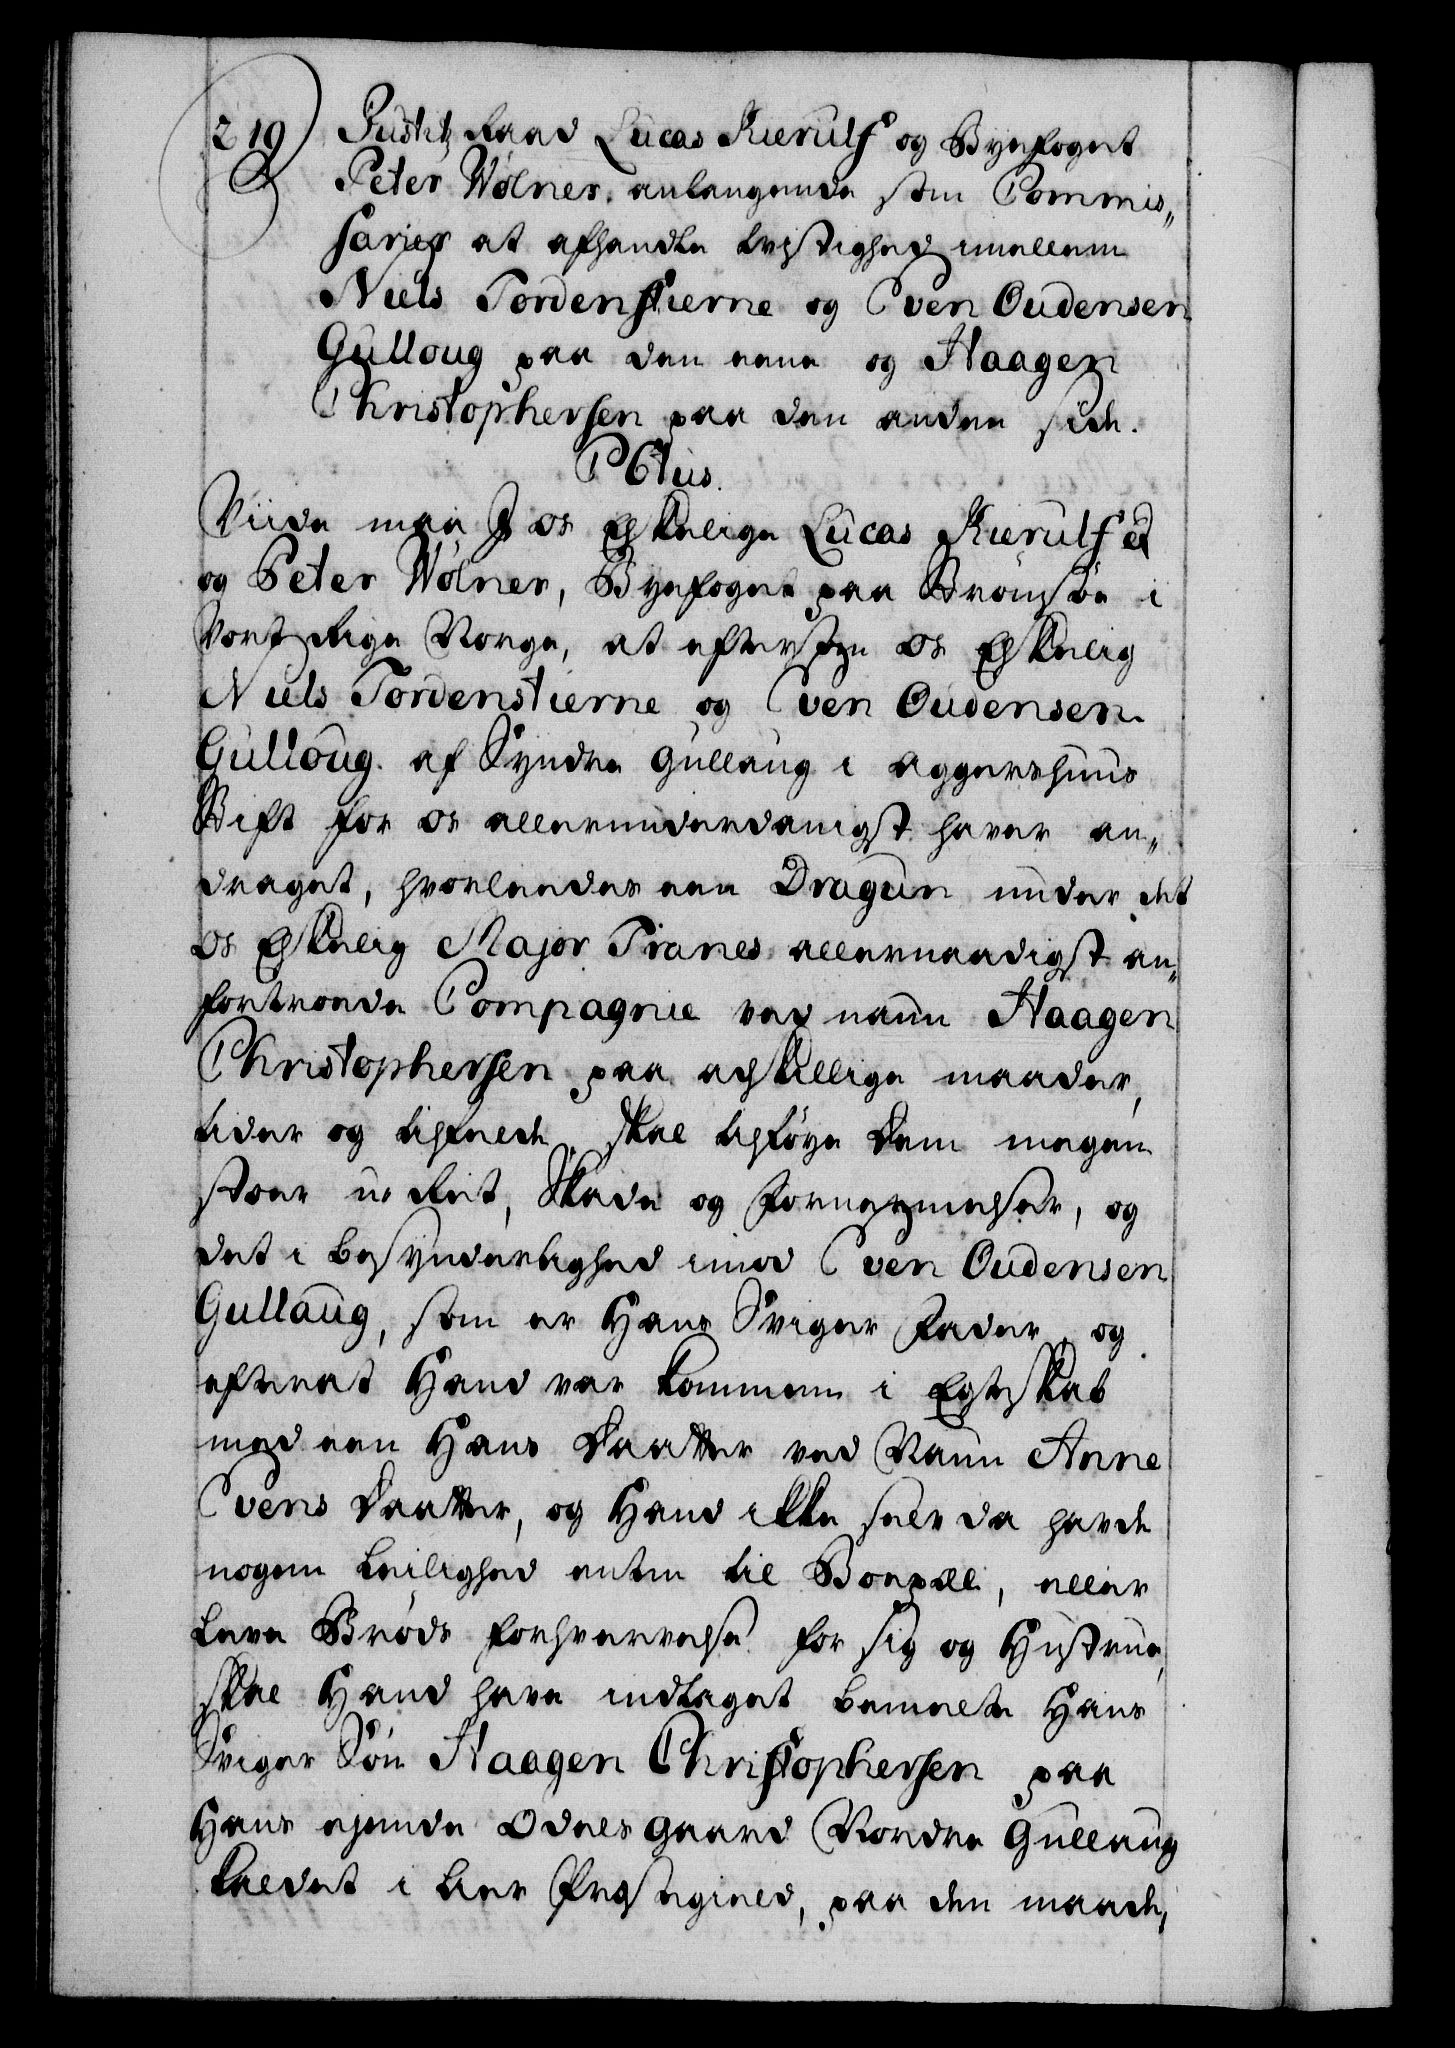 219 Justitz Raad Lucas Kierulf og Byefoget
Peter Wølner, anlangende som Commis„
sarier at afhandle tvistighed imellem
Niels Tordenstierne og Sven Oudensen
Gulloug paa den eene og Haagen
Christophersen paa den anden side.
C 6tus.
Viide maa I os Elskelige Lucas Kierulf
og Peter Wølner, Byefoget paa Bragnæs i
Vort Rige Norge, at eftersom os Elskelig
Niels Tordenstierne og Sven Oudensen
Gulloug af Syndre Gullaug i Aggershuus
Stift for os allerunderdanigst haver an„
draget, hvorleedes een Dragun under det
os Elskelig Major Tranes allernaadigst an„
fortroede Compagnie ved naun Haagen
Christophersen paa adskillige maader,
tider og tilfælde, skal tilføye dem megen
stoer u-Ret, Skade og Fornermelser, og
det i besynderlighed imod Sven Oudensen
Gullaug, som er Hans Sviger Fader, og
efterat Hand var kommen i Egteskab
med een Hans Daatter ved Naun Anne
Svens Daatter, og Hand ikke selv da havde
nogen leilighed enten til Boepæll, eller
leve Brøds forhvervelse for sig og Hustrue,
skal Hand have indtaget bemelte Hans
Sviger Søn Haagen Christophersen paa
Hans ejende Odels Gaard Nordre Gullaug
kaldet i Lier Præstegield, paa den maade,